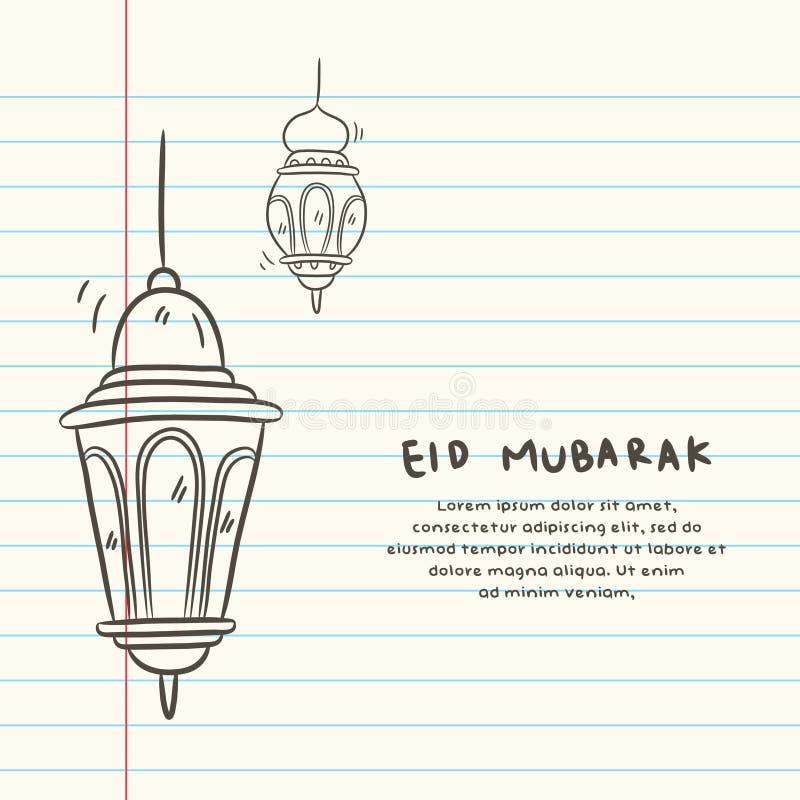 EID MUBARAK
Lorem ipsum dolor sit amet,
consectetur adipiscing elit, sed do
eiusmod tempor incididunt ut labore et
dolore magna aliqua. Ut enim
ad minim veniam,
dreamstime